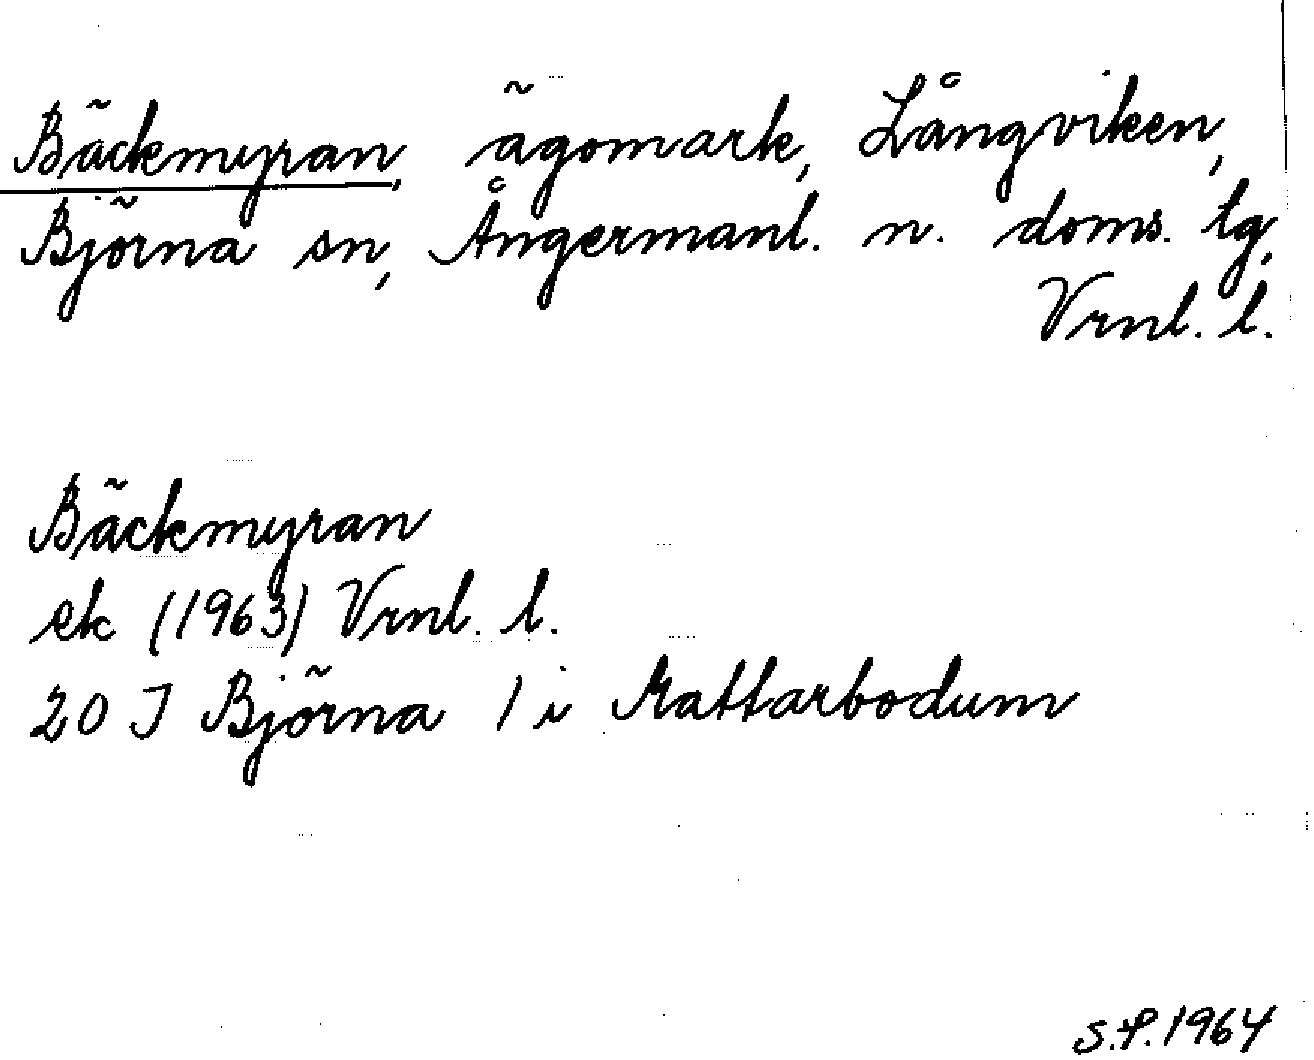 Bäckmyran, ägomark, Långviken,
Björna sn, Ångermanl. n. doms. lg,
Vrnl. l.
Bäckmyran
ek (1963) Vrnl. l.
20 J Björna 1 i Mattarbodum
S.P. 1964